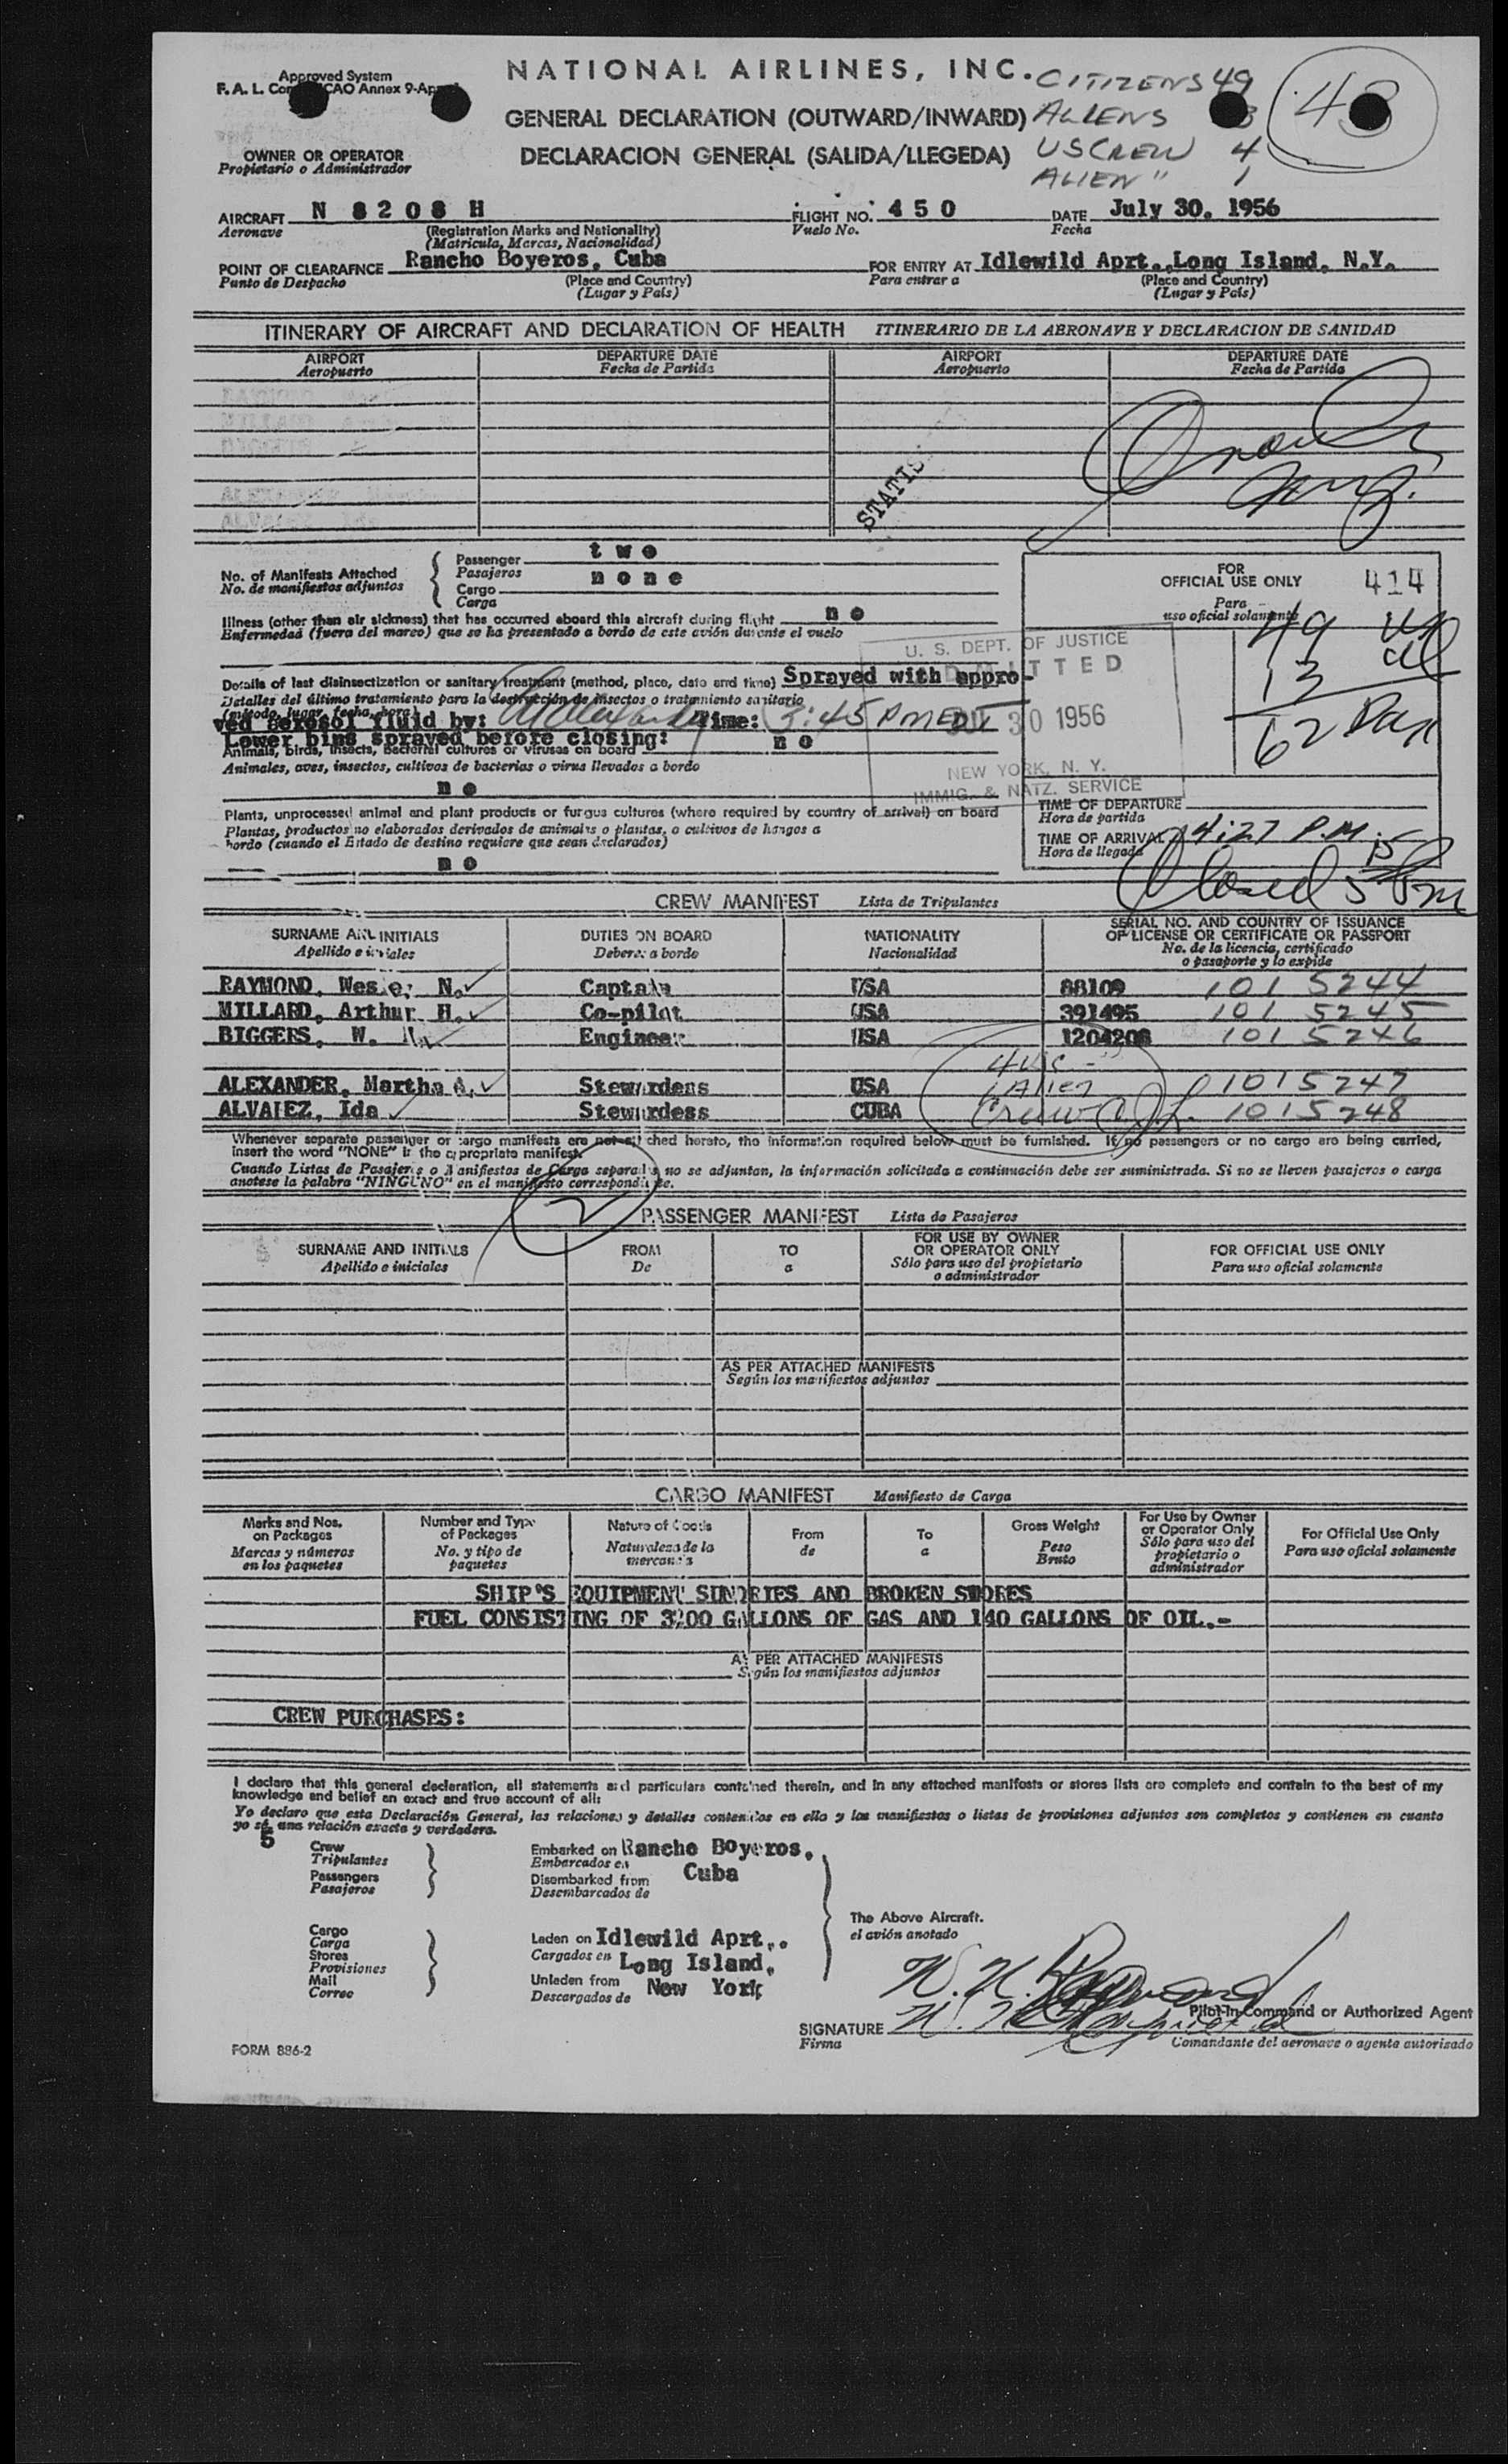 Approved System
F. A. L. CAO Annex 9-
NATIONAL AIRLINES, INC.
CITIZENS 49
ALIENS 3
US CREW 4
ALIEN " 1
GENERAL DECLARATION (OUTWARD/INWARD)
DECLARACION GENERAL (SALIDA/LLEGEDA)
OWNER OR OPERATOR
Propietario o Administrador
AIRCRAFT N 8208 H FLIGHT NO. 450 DATE July 30, 1956
Aeronave (Registration Marks and Nationality) Vuelo No. Fecha
(Matricula, Marcas, Nacionalidad)
POINT OF CLEARAFNCE Rancho Boyeros, Cuba FOR ENTRY AT Idlewild Aprt., Long Island, N.Y.
Punto de Despacho (Place and Country) Para entrar a (Place and Country)
(Lugar y País) (Lugar y País)
ITINERARY OF AIRCRAFT AND DECLARATION OF HEALTH ITINERARIO DE LA AERONAVE Y DECLARACION DE SANIDAD
AIRPORT DEPARTURE DATE AIRPORT DEPARTURE DATE
Aeropuerto Fecha de Partida Aeropuerto Fecha de Partida
STATIS.
No. of Manifests Attached Passenger two
No. de manifiestos adjuntos Pasajeros
Cargo none
Carga
FOR
OFFICIAL USE ONLY 414
Para
uso oficial solamente
Illness (other than air sickness) that has occurred aboard this aircraft during flight no
Enfermedad (fuera del mareo) que se ha presentado a bordo de este avión durante el vuelo
U. S. DEPT. OF JUSTICE
ADMITTED
30 1956
NEW YORK, N. Y.
IMMIG. & NATZ. SERVICE
49
13
62 Pax
Details of last disinsectization or sanitary treatment (method, place, date and time) Sprayed with appro-
Detalles del último tratamiento para la destrucción de insectos o tratamiento sanitario
(método, lugar, fecha, hora)
ved aerosol fluid by: Time: 3:45 PM EDT
Lower bins sprayed before closing:
Animals, birds, insects, bacterial cultures or viruses on board no
Animales, aves, insectos, cultivos de bacterias o virus llevados a bordo
no
Plants, unprocessed animal and plant products or fungus cultures (where required by country of arrival) on board
Plantas, productos no elaborados derivados de animales o plantas, o cultivos de hongos a
bordo (cuando el Estado de destino requiere que sean declarados)
no
TIME OF DEPARTURE
Hora de partida
TIME OF ARRIVAL 4:27 P.M.
Hora de llegada
Closed 5 15 Pm
CREW MANIFEST Lista de Tripulantes
SURNAME AND INITIALS DUTIES ON BOARD NATIONALITY SERIAL NO. AND COUNTRY OF ISSUANCE
OF LICENSE OR CERTIFICATE OR PASSPORT
Apellido e iniciales Deberes a bordo Nacionalidad No. de la licencia, certificado
o pasaporte y lo expide
RAYMOND, Wesley N. Captain USA 88109 1015244
MILLARD, Arthur H. Co-pilot USA 391495 1015245
BIGGERS, W. Engineer USA 1204208 1015246
ALEXANDER, Martha A. Stewardess USA 1015247
ALVAREZ, Ida Stewardess CUBA 1015248
4 USC
1 Alien
Crew
Whenever separate passenger or cargo manifests are not attached hereto, the information required below must be furnished. If no passengers or no cargo are being carried,
insert the word "NONE" in the appropriate manifest.
Cuando Listas de Pasajeros o Manifiestos de Carga separados no se adjuntan, la información solicitada a continuación debe ser suministrada. Si no se lleven pasajeros o carga
anotese la palabra "NINGUNO" en el manifiesto correspondiente.
2
PASSENGER MANIFEST Lista de Pasajeros
SURNAME AND INITIALS FROM TO FOR USE BY OWNER OR OPERATOR ONLY FOR OFFICIAL USE ONLY
Apellido e iniciales De a Sólo para uso del propietario o administrador Para uso oficial solamente
AS PER ATTACHED MANIFESTS
Según los manifiestos adjuntos
CARGO MANIFEST Manifiesto de Carga
Marks and Nos. on Packages Number and Type of Packages Nature of Goods From To Gross Weight For Use by Owner or Operator Only For Official Use Only
Marcas y números en los paquetes No. y tipo de paquetes Naturaleza de la mercancía de a Peso Bruto Sólo para uso del propietario o administrador Para uso oficial solamente
SHIP'S EQUIPMENT SUNDRIES AND BROKEN STORES
FUEL CONSISTING OF 3200 GALLONS OF GAS AND 140 GALLONS OF OIL.-
AS PER ATTACHED MANIFESTS
Según los manifiestos adjuntos
CREW PURCHASES:
I declare that this general declaration, all statements and particulars contained therein, and in any attached manifests or stores lists are complete and contain to the best of my
knowledge and belief an exact and true account of all:
Yo declaro que esta Declaración General, las relaciones y detalles contenidos en ella y los manifiestos o listas de provisiones adjuntos son completos y contienen en cuanto
yo sé, una relación exacta y verdadera.
5
Crew Embarked on Rancho Boyeros,
Tripulantes Embarcados en Cuba
Passengers Disembarked from
Pasajeros Desembarcados de
The Above Aircraft.
el avión anotado
Cargo Laden on Idlewild Aprt.,
Carga Cargados en Long Island,
Stores
Provisiones
Mail Unladen from New York
Correo Descargados de
W. N. Raymond
Pilot-in-Command or Authorized Agent
SIGNATURE W. N. Raymond
Firma Comandante del aeronave o agente autorizado
FORM 886-2